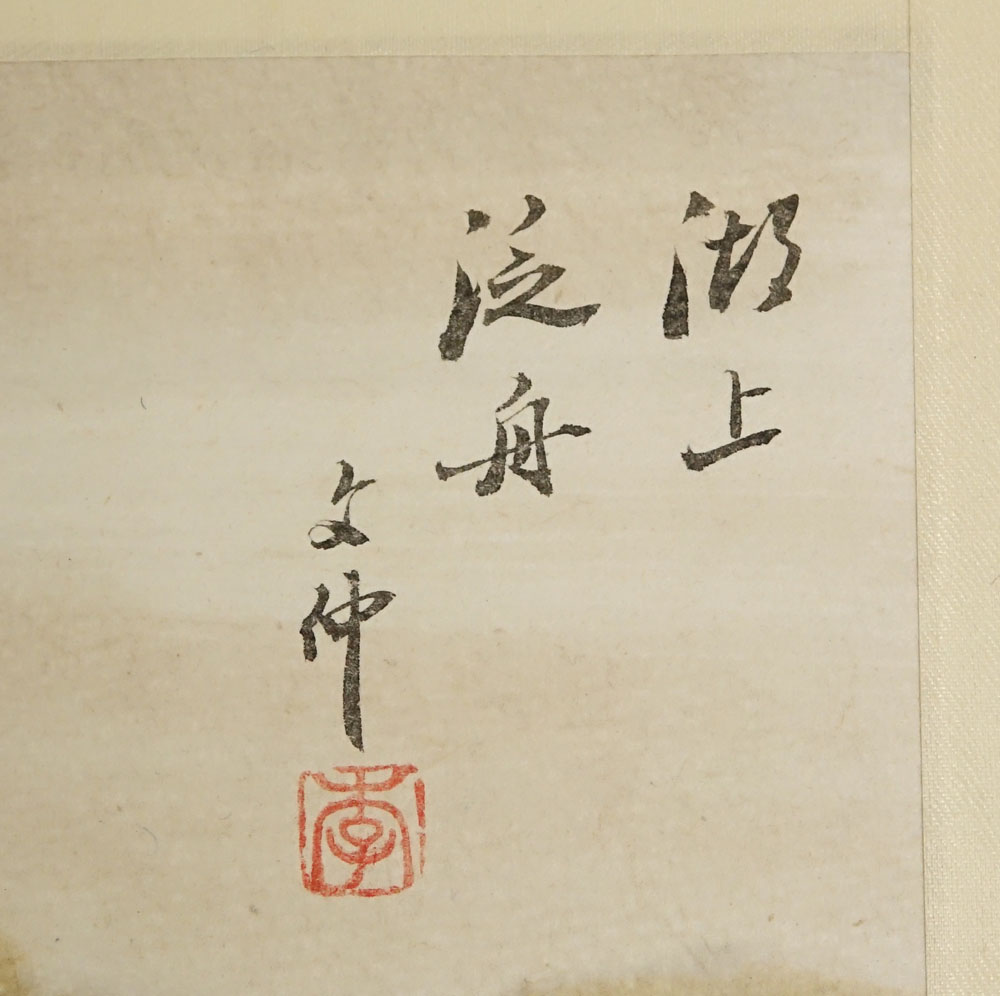 湖上
泛舟
文仲
季